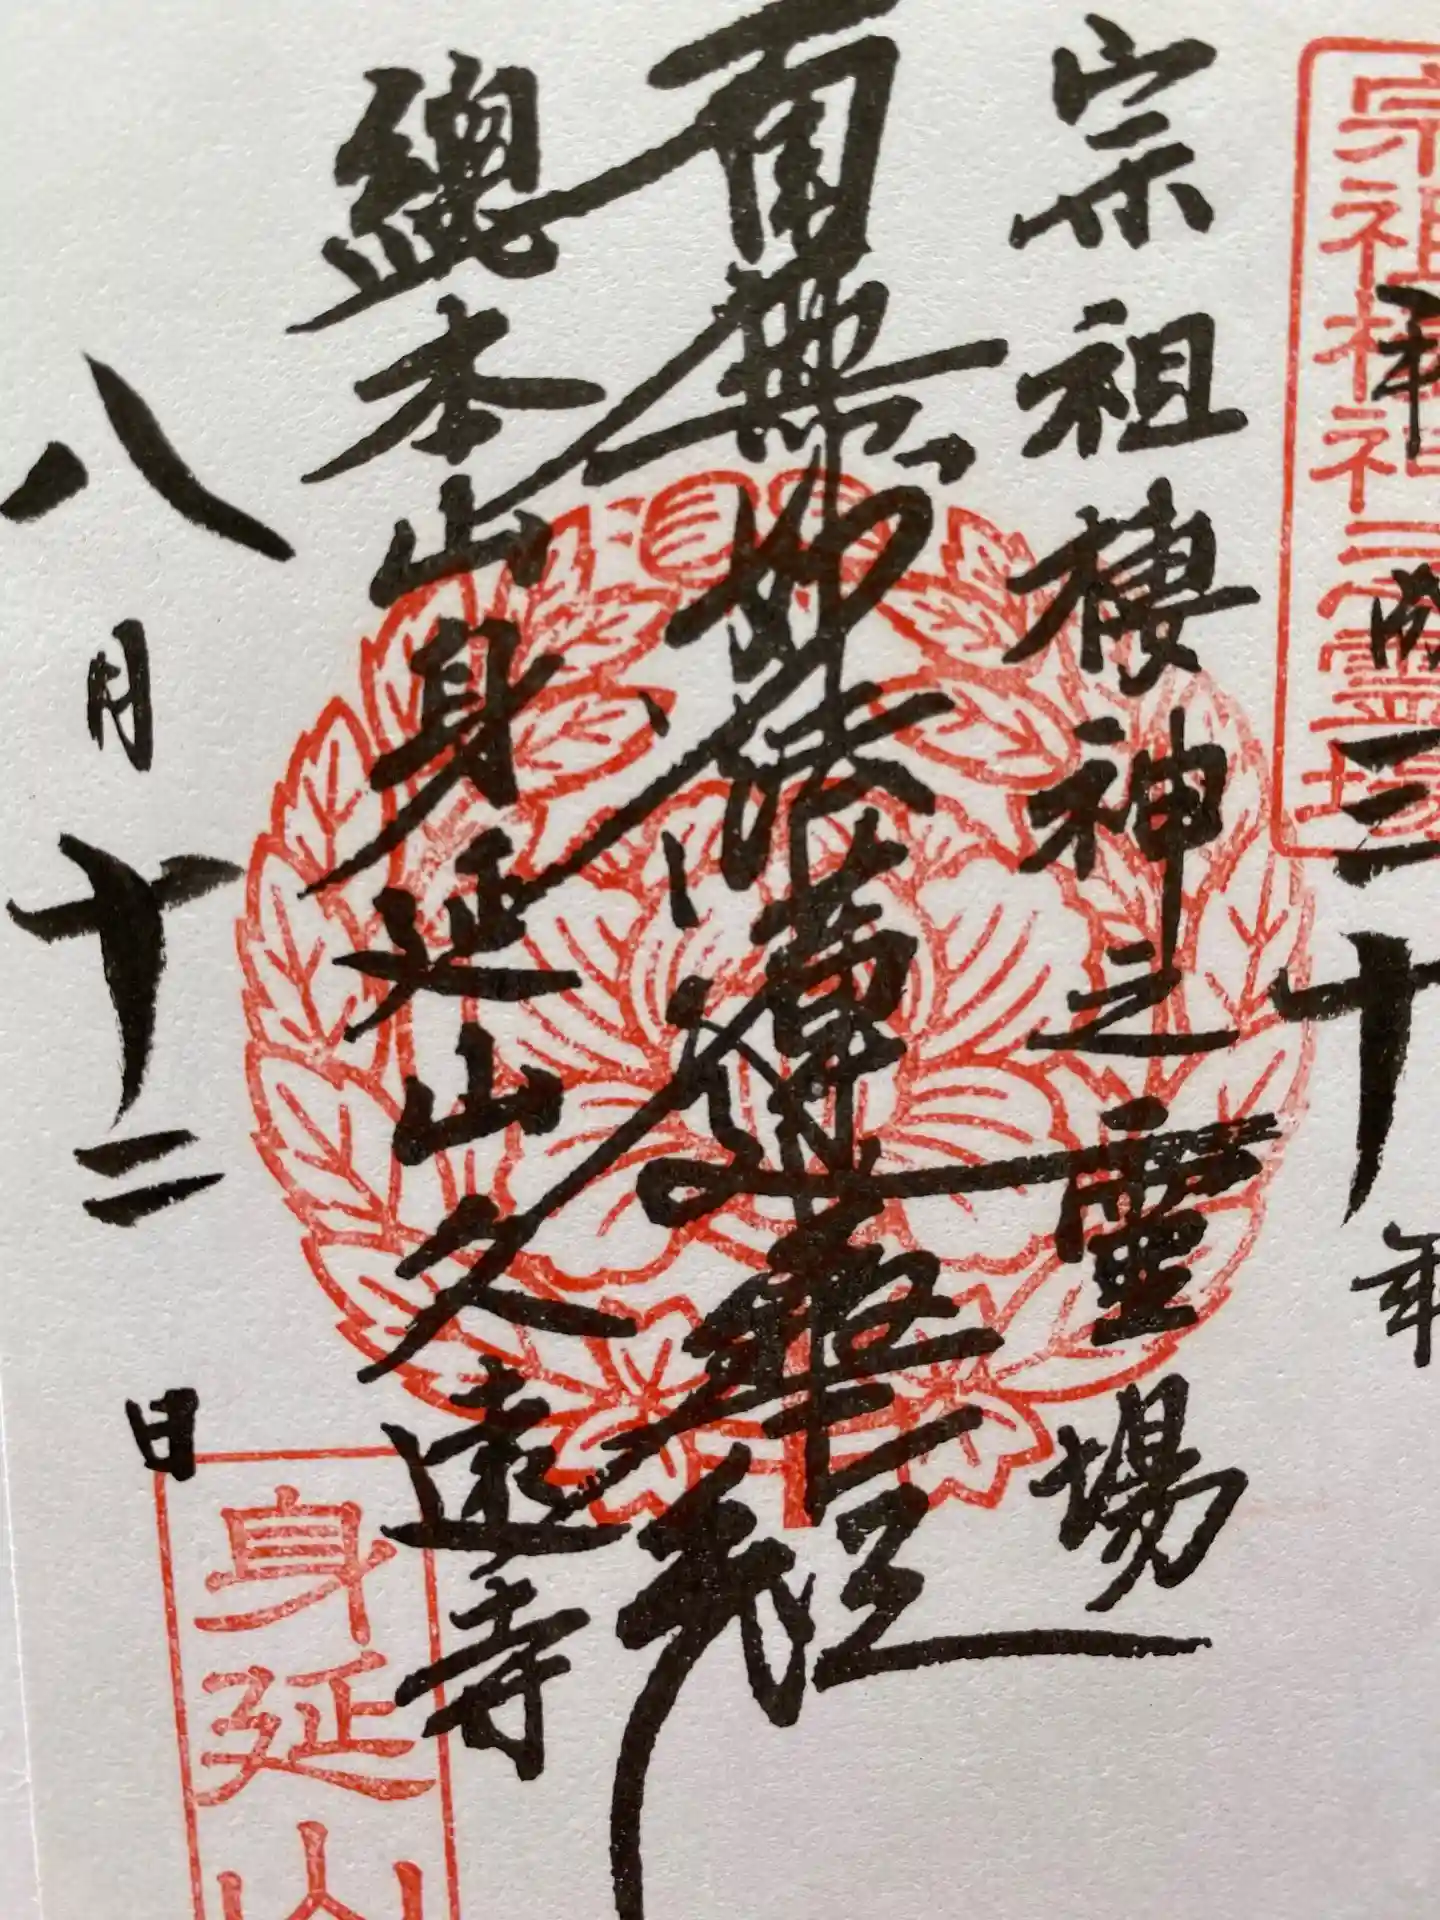 宗祖棲神之霊場
平成三十年
宗祖棲神之靈場
南無妙法蓮華経
總本山身延山久遠寺
八月十二日
身延山